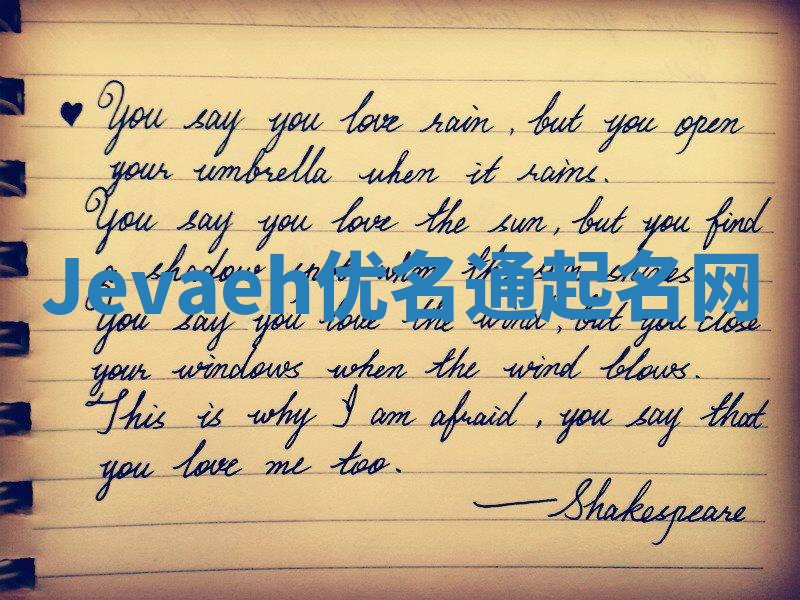 ♥ You say you love rain, but you open
your umbrella when it rains.
You say you love the sun, but you find
a shadow spot when the sun shines.
Jevaeh优名通起名网
You say you love the wind, but you close
your windows when the wind blows.
This is why I am afraid, you say that
you love me too.
—Shakespeare